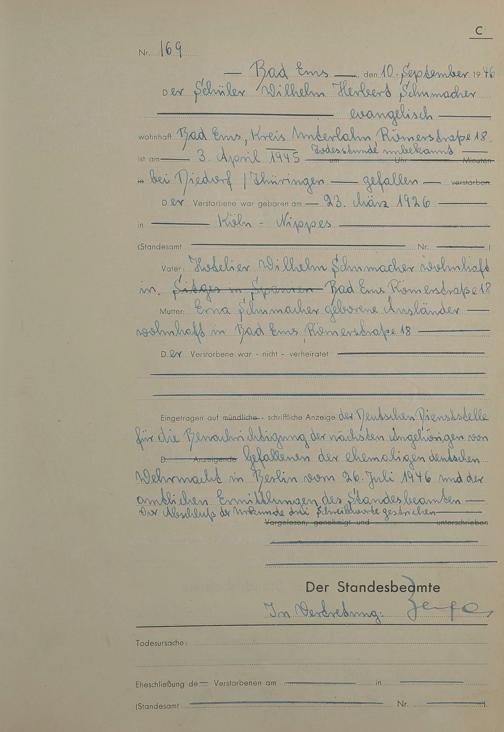 C
Nr. 169
Bad Ems, den 10. September 1946
Der Schüler Wilhelm Herbert Schumacher
evangelisch
wohnhaft Bad Ems, Kreis Unterlahn, Römerstraße 18
ist am 3. April 1945 um Todesstunde unbekannt Uhr Minuten
in bei Diedorf / Thüringen gefallen verstorben
Der Verstorbene war geboren am 23. März 1926
in Köln - Nippes
(Standesamt Nr. )
Vater: Hotelier Wilhelm Schumacher wohnhaft
in Sitges in Spanien Bad Ems Römerstraße 18
Mutter: Erna Schumacher geborene Ausländer
wohnhaft in Bad Ems, Römerstraße 18
Der Verstorbene war - nicht - verheiratet
Eingetragen auf mündliche - schriftliche Anzeige der Deutschen Dienststelle
für die Benachrichtigung der nächsten Angehörigen von
D Anzeigende Gefallenen der ehemaligen deutschen
Wehrmacht in Berlin vom 26. Juli 1946 und der
amtlichen Ermittlungen des Standesbeamten
Vor Abschluß der Urkunde drei Schreibworte gestrichen
Vorgelesen, genehmigt und unterschrieben
Der Standesbeamte
In Vertretung:
Todesursache:
Eheschließung de Verstorbenen am in
(Standesamt Nr. ).